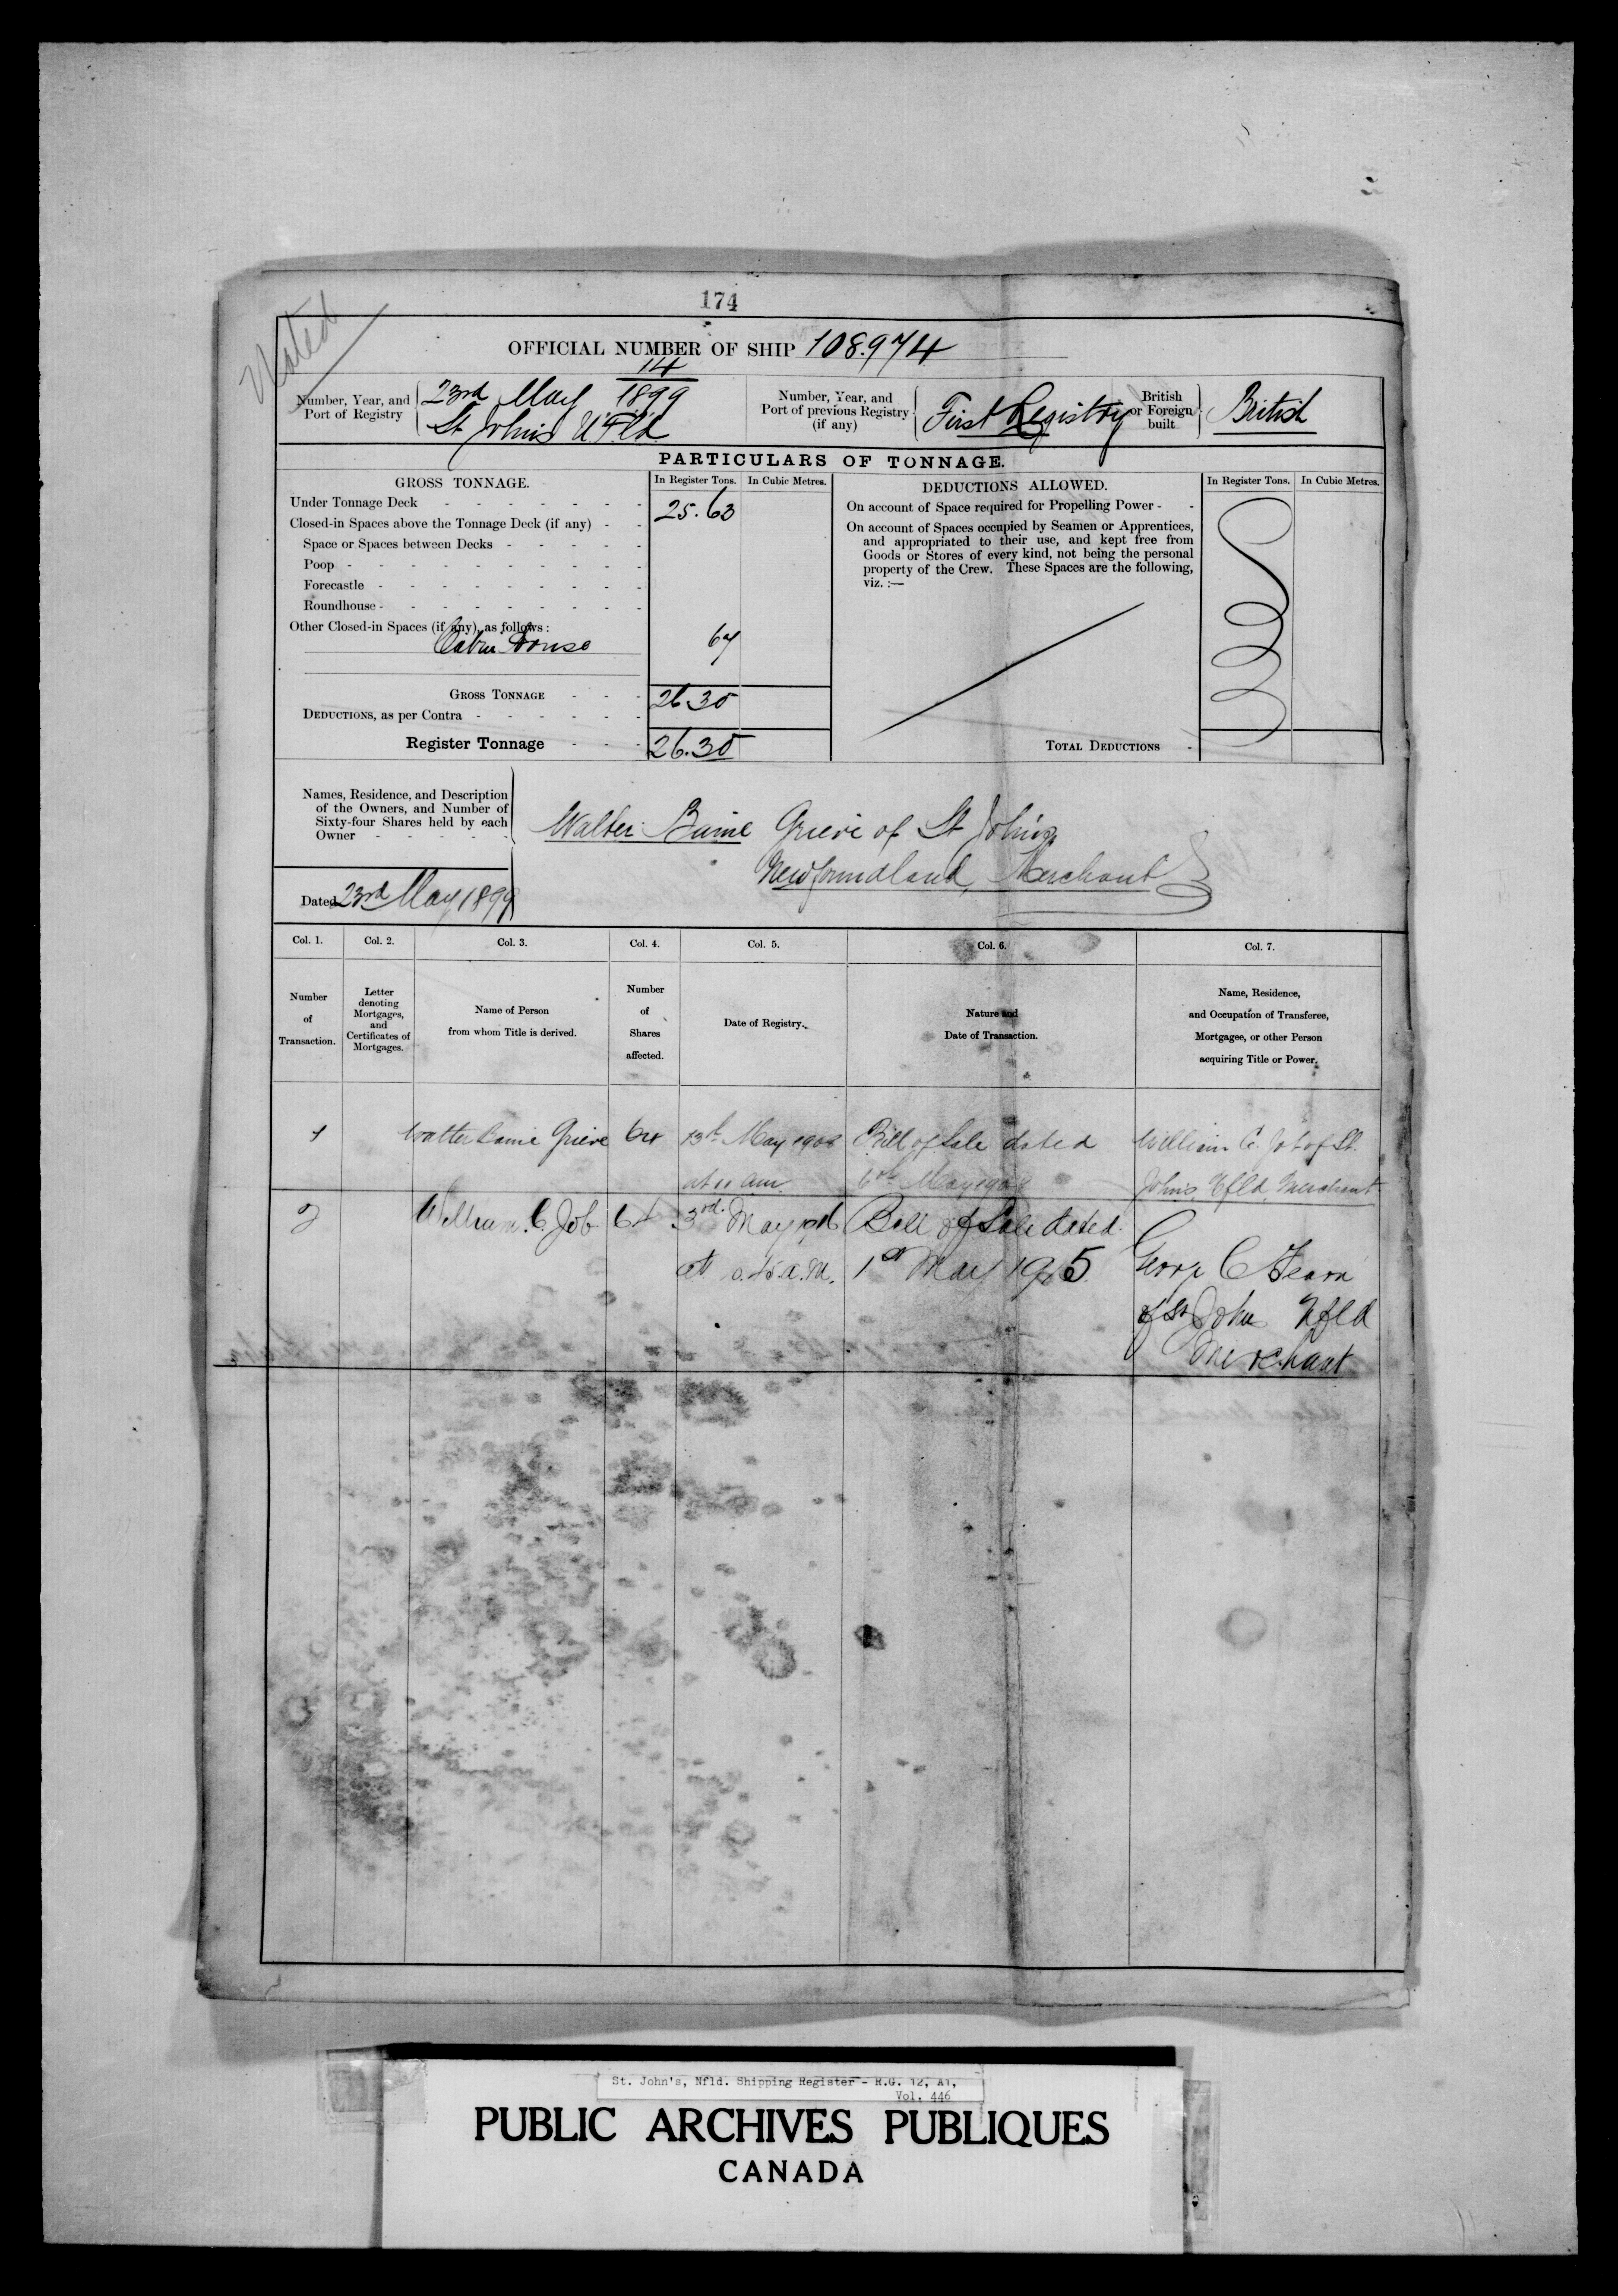 174
Noted
OFFICIAL NUMBER OF SHIP 108.974
Number, Year, and Port of Registry
14
23rd May 1899
St John's N'F'l'd
Number, Year, and Port of previous Registry (if any)
First Registry
British or Foreign built
British
PARTICULARS OF TONNAGE.
GROSS TONNAGE.
In Register Tons. In Cubic Metres.
Under Tonnage Deck 25.63
Closed-in Spaces above the Tonnage Deck (if any)
Space or Spaces between Decks
Poop
Forecastle
Roundhouse
Other Closed-in Spaces (if any), as follows:
Cabin House 67
GROSS TONNAGE 26.30
DEDUCTIONS, as per Contra
Register Tonnage 26.30
DEDUCTIONS ALLOWED.
In Register Tons. In Cubic Metres.
On account of Space required for Propelling Power
On account of Spaces occupied by Seamen or Apprentices,
and appropriated to their use, and kept free from
Goods or Stores of every kind, not being the personal
property of the Crew. These Spaces are the following,
viz. :—
TOTAL DEDUCTIONS
Names, Residence, and Description
of the Owners, and Number of
Sixty-four Shares held by each
Owner
Walter Baine Grieve of St John's
Newfoundland, Merchant
Dated 23rd May 1899
Col. 1. Col. 2. Col. 3. Col. 4. Col. 5. Col. 6. Col. 7.
Number of Transaction.
Letter denoting Mortgages, and Certificates of Mortgages.
Name of Person from whom Title is derived.
Number of Shares affected.
Date of Registry.
Nature and Date of Transaction.
Name, Residence, and Occupation of Transferee, Mortgagee, or other Person acquiring Title or Power.
1 Walter Baine Grieve 64 13th May 1908 Bill of Sale dated William C. Job of St.
at 11 am. 6th May 1908 John's, Nfld, Merchant
2 William C. Job 64 3rd May Bill of Sale dated
at a.m. 1st May George C Fearn
of St John Nfld
Merchant
St. John's, Nfld. Shipping Register - R.G. 12, A1,
Vol. 446
PUBLIC ARCHIVES PUBLIQUES
CANADA